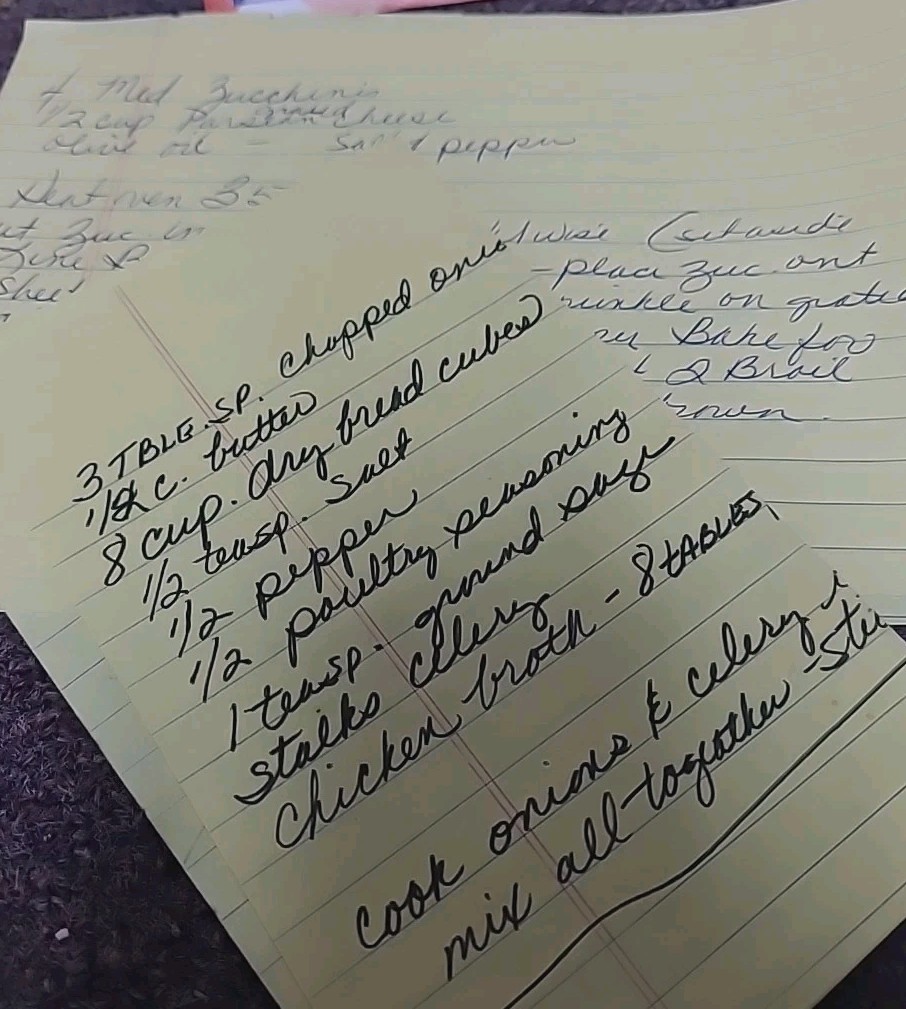 4 Med Zucchinis
1/2 cup Parsian Cheese
grated
olive oil - Salt & pepper
Heat oven 35
ut Zuc in
Sheet
wise (setaside
- place zuc. ont
rinkle on grate
Bake for
2 Broil
rown.
3 TBLE. SP. chopped onion
c. butter
8 cup. dry bread cubes
1/2 teasp. Salt
1/2 pepper
1/2 poultry seasoning
1 teasp. ground sage
stalks celery
chicken broth - 8 TABLES,
cook onions & celery i
mix all together - Ste